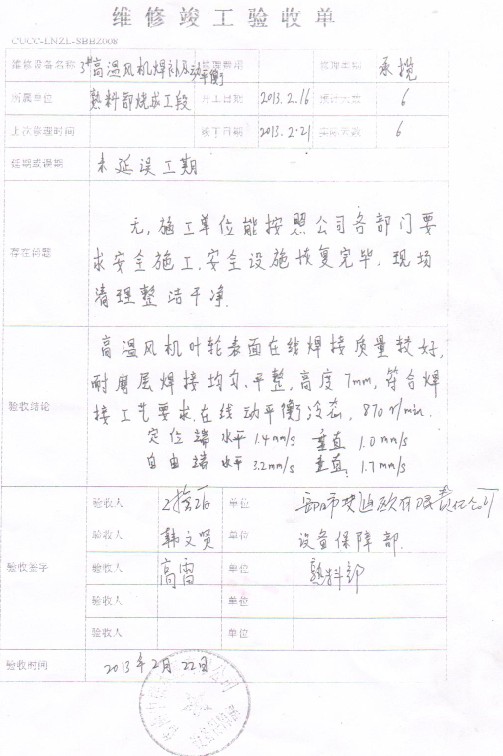 维修竣工验收单
CUCC-LNZL-SBHZ008
维修设备名称 3#高温风机焊补及动平衡 修理类别 承揽
所属单位 熟料部烧成工段 开工日期 2013.2.16 预计天数 6
上次修理时间 竣工日期 2013.2.21 实际天数 6
延期或误期 未延误工期
存在问题 无,施工单位能按照公司各部门要
求安全施工、安全设施恢复完毕,现场
清理整洁干净.
验收结论 高温风机叶轮表面在线焊接质量较好,
耐磨层焊接均匀、平整,高度7mm,符合焊
接工艺要求,在线动平衡冷态,870r/min.
定位端 水平1.4mm/s 垂直1.0mm/s
自由端 水平3.2mm/s 垂直:1.7mm/s
验收签字
验收人 单位 有限责任公司
验收人 韩文贤 单位 设备保障部.
验收人 高雷 单位 熟料部
验收人 单位
验收人 单位
验收时间 2013年2月22日